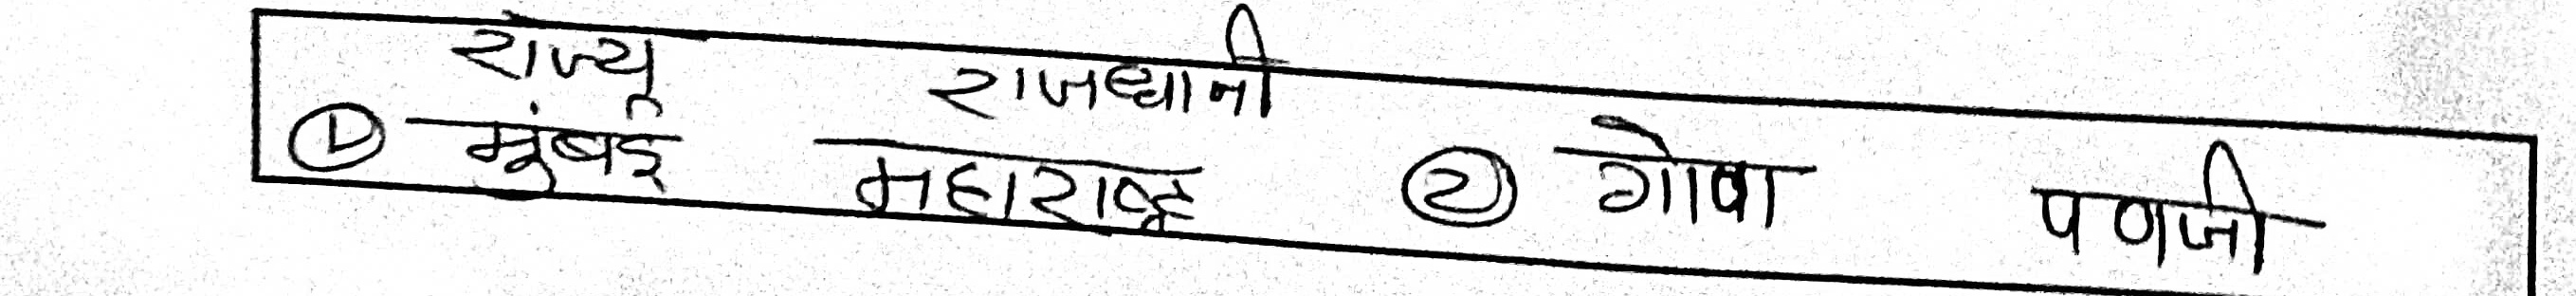 राज्य राजधानी
① मुंबई महाराष्ट्र ② गोवा पणजी